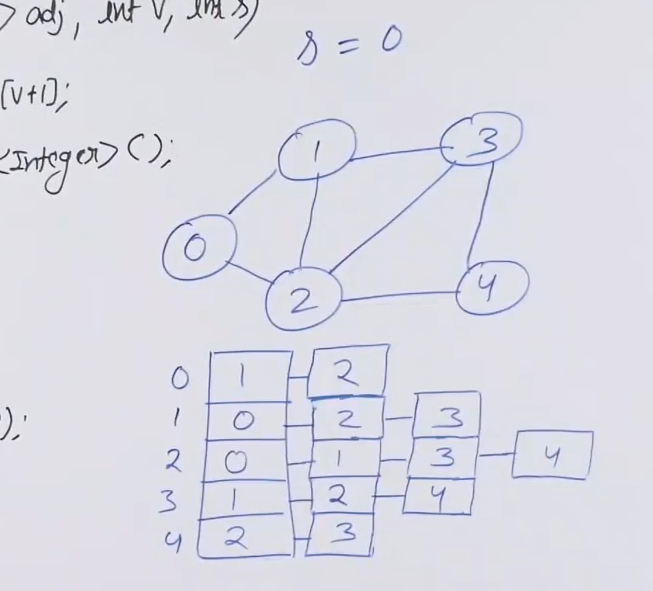 > adj, int V, int s)
s = 0
[V+1];
<Integer>();
1
3
0
2
4
0 1 2
1 0 2 3
2 0 1 3 4
3 1 2 4
4 2 3
);